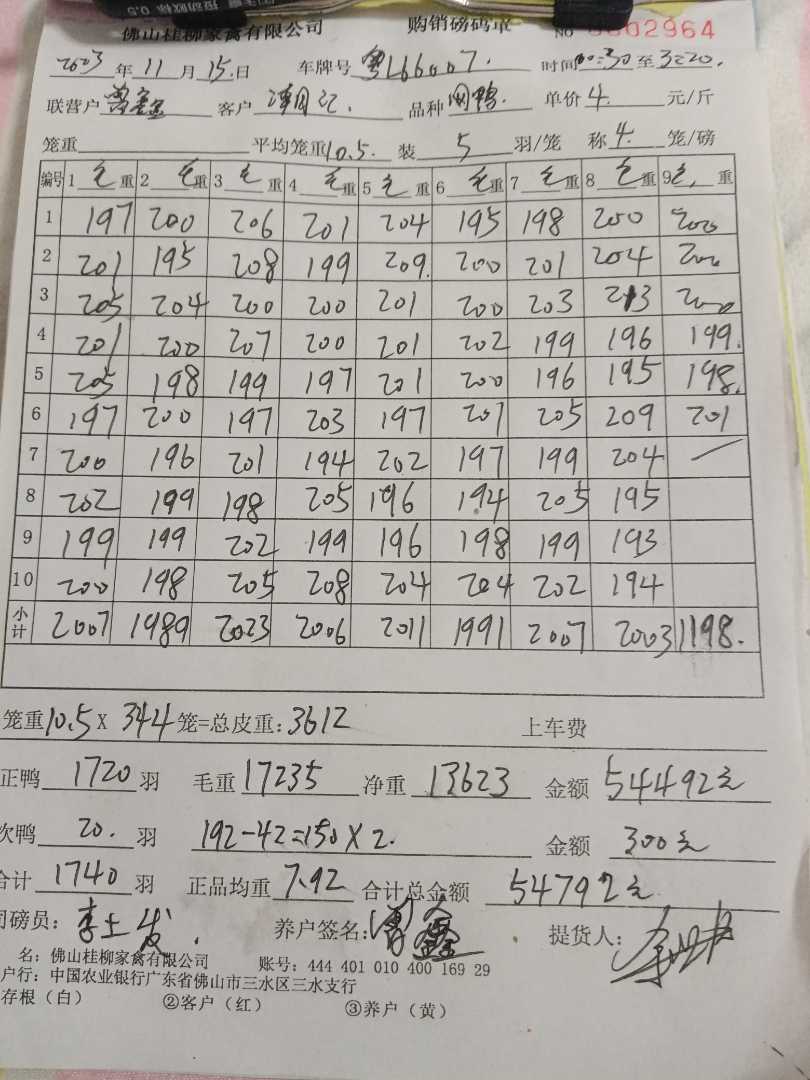 佛山桂柳家禽有限公司 购销磅码单 NO 0002964
2023年11月15日 车牌号 粤L66007. 时间00:30至3:20.
联营户 曾鑫 客户 品种 单价 4. 元/斤
笼重 平均笼重10.5. 装 5 羽/笼 称 4. 笼/磅
编号 1 毛 重 2 毛 重 3 毛 重 4 毛 重 5 毛 重 6 毛 重 7 毛 重 8 毛 重 9 毛 重
1 197 200 206 201 204 195 198 200 200
2 201 195 208 199 209. 200 201 204 200
3 205 204 200 200 201 200 203 213 200
4 201 200 207 200 201 202 199 196 199.
5 205 198 199 197 201 200 196 195 198.
6 197 200 197 203 197 201 205 209 201
7 200 196 201 194 202 197 199 204 —
8 202 199 198 205 196 194 205 195
9 199 199 202 199 196 198 199 193
10 200 198 205 208 204 204 202 194
小计 2007 1989 2023 2006 2011 1991 2007 2003 1198.
笼重10.5 X 344 笼=总皮重:3612 上车费
正鸭 1720 羽 毛重 17235 净重 13623 金额 54492元
次鸭 20. 羽 192-42=150 X 2. 金额 300元
合计 1740 羽 正品均重 7.92 合计总金额 54792元
司磅员: 李土发. 养户签名: 曾鑫 提货人:
名: 佛山桂柳家禽有限公司 账号: 444 401 010 400 169 29
户行: 中国农业银行广东省佛山市三水区三水支行
存根(白) ②客户(红) ③养户(黄)